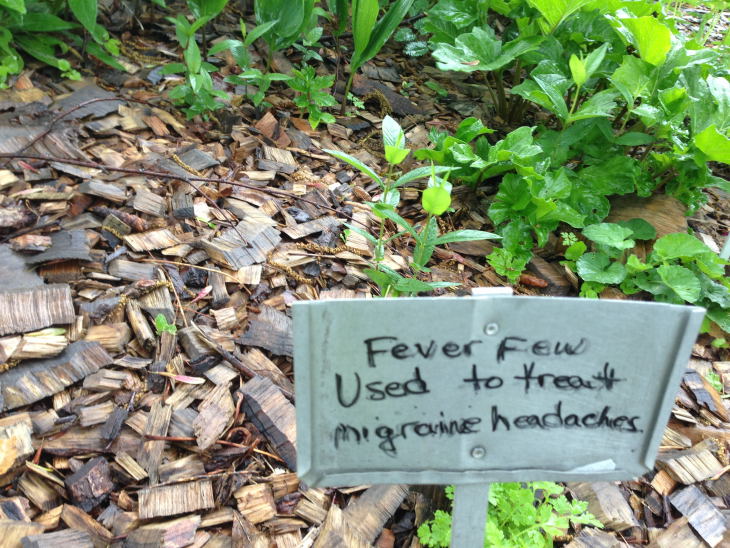 Fever Few
Used to treat
migraine headaches.